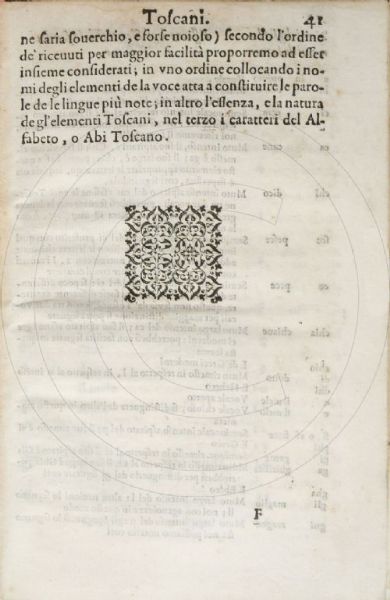 Toscani. 41
ne saria souerchio, e forse noioso) secondo l'ordine
de' riceuuti per maggior facilità proporremo ad esser
insieme considerati; in vno ordine collocando i no-
mi degli elementi de la voce atta a constituire le paro-
le de le lingue più note; in altro l'essenza, e la natura
de gl'elementi Toscani, nel terzo i caratteri del Al-
fabeto, o Abi Toscano.
F